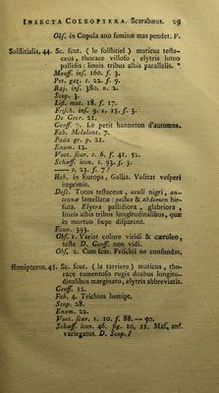 INSECTA COLEOPTERA. Scarabæus. 29
Obs. in Copula ano feminæ mas pendet. F.
Solstitialis, 44. Sc. scut. ( le solstitiel ) muticus testa-
ceus, thorace villoso, elytris luteo
pallidis: lineis tribus albis parallelis. *
Mouff. inf. 160. f. 3.
Pet. gaz. t. 22. f. 9.
Raj. inf. 380. n. 2.
Scop. 3.
List. mut. 18. f. 17.
Frisch. inf. 9. t. 15. f. 3.
De Geer. 21.
Geoff. 7. Le petit hanneton d'automne.
Fab. Melolont. 7.
Poda gr. p. 21.
Enum. 12.
Voet. scar. t. 6. f. 41. 52.
Schæff. icon. t. 93. f. 3.
— t. 23. f. 7?
Hab. in Europa, Gallia. Volitat vesperi
inprimis.
Desc. Totus testaceus, oculi nigri, an-
tennæ lamellatæ: pectus & abdomen hir-
suta. Elytra pallidiora, glabriora,
lineis albis tribus longitudinalibus, quæ
in mortuo sæpe disparent.
Faun. 393.
Obs. 1. Variat colore viridi & cæruleo,
teste D. Geoff. non vidi.
Obs. 2. Cum scar. Frischii ne confundas.
Hemipterus. 45. Sc. scut. ( la tarriere ) muticus, tho-
race tomentoso rugis duabus longitu-
dinalibus marginato, elytris abbreviatis.
Geoff. 12.
Fab. 4. Trichius hemipt.
Scop. 28.
Enum. 22.
Voet. scar. t. 10. f. 88. — 90.
Schæff. icon. 46. fig. 10, 11. Mas, anf.
variegatus. D. Scop. ?